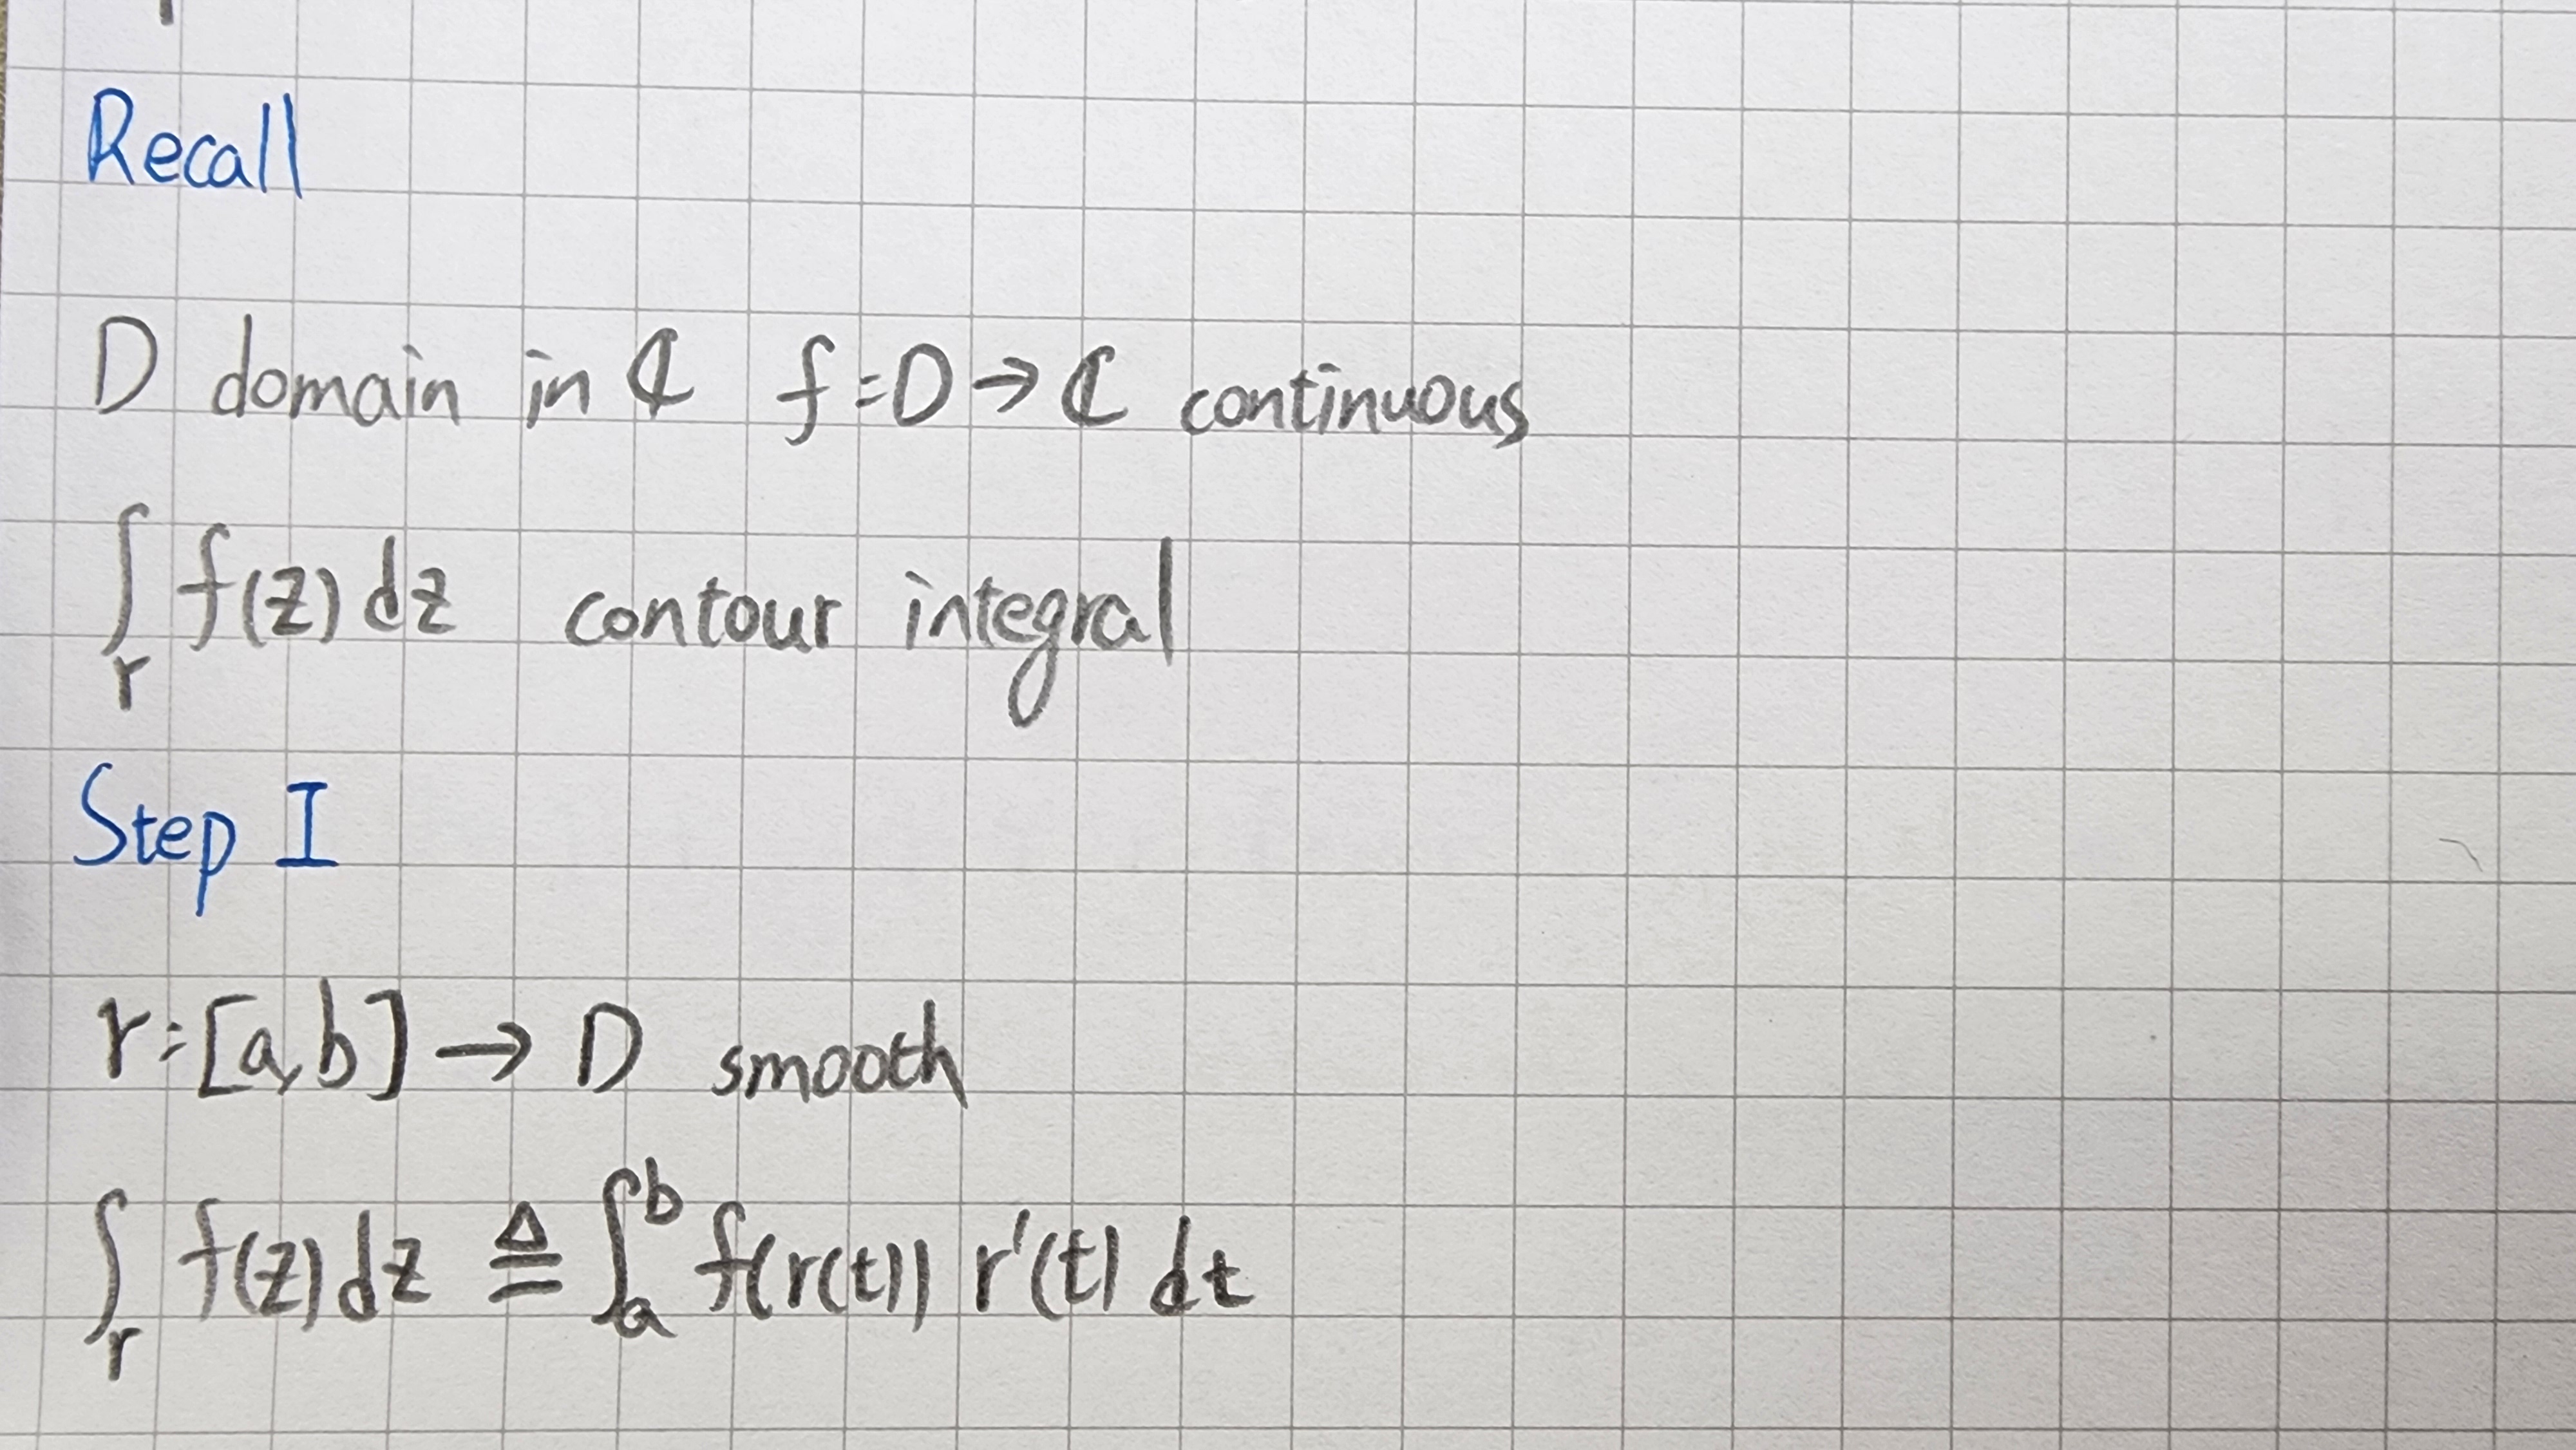 Recall
D domain in ℂ f:D→ℂ continuous
∫_r f(z) dz contour integral
Step I
r:[a,b]→D smooth
∫_r f(z)dz ≜ ∫_a^b f(r(t)) r'(t) dt